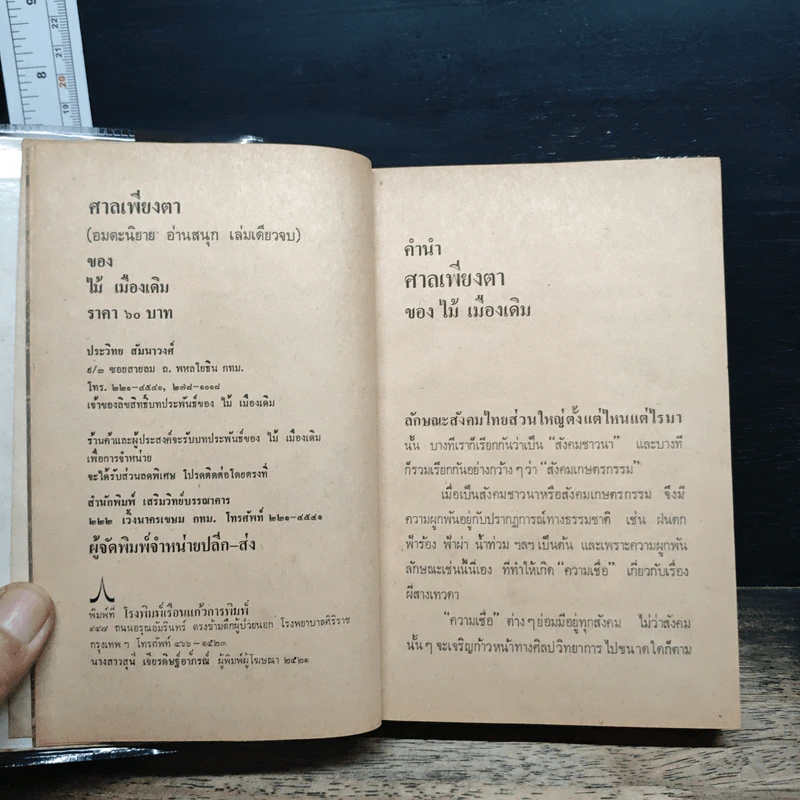 9
8
22
21
20
19
ศาลเพียงตา
(อมตะนิยาย อ่านสนุก เล่มเดียวจบ)
ของ
ไม้ เมืองเดิม
ราคา ๖๐ บาท
ประวิทย สัมมาวงศ์
๙/๓ ซอยสายลม ถ. พหลโยธิน กทม.
โทร. ๒๒๑-๔๕๔๑, ๒๗๘-๑๐๑๘
เจ้าของลิขสิทธิ์บทประพันธ์ของ ไม้ เมืองเดิม
ร้านค้าและผู้ประสงค์จะรับบทประพันธ์ของ ไม้ เมืองเดิม
เพื่อการจำหน่าย
จะได้รับส่วนลดพิเศษ โปรดติดต่อโดยตรงที่
สำนักพิมพ์ เสริมวิทย์บรรณาคาร
๒๒๒ เวิ้งนาครเขษม กทม. โทรศัพท์ ๒๒๑-๔๕๔๑
ผู้จัดพิมพ์จำหน่ายปลีก-ส่ง
พิมพ์ที่ โรงพิมพ์เรือนแก้วการพิมพ์
๙๔๗ ถนนอรุณอัมรินทร์ ตรงข้ามตึกผู้ป่วยนอก โรงพยาบาลศิริราช
กรุงเทพ ฯ โทรศัพท์ ๔๖๖-๑๕๒๓
นางสาวสุนี เจียรดิษฐ์อาภรณ์ ผู้พิมพ์ผู้โฆษณา ๒๕๒๑
คำนำ
ศาลเพียงตา
ของ ไม้ เมืองเดิม
ลักษณะสังคมไทยส่วนใหญ่ตั้งแต่ไหนแต่ไรมา
นั้น บางทีเราก็เรียกกันว่าเป็น "สังคมชาวนา" และบางที
ก็รวมเรียกกันอย่างกว้าง ๆ ว่า "สังคมเกษตรกรรม"
เมื่อเป็นสังคมชาวนาหรือสังคมเกษตรกรรม จึงมี
ความผูกพันอยู่กับปรากฏการณ์ทางธรรมชาติ เช่น ฝนตก
ฟ้าร้อง ฟ้าผ่า น้ำท่วม ฯลฯ เป็นต้น และเพราะความผูกพัน
ลักษณะเช่นนี้นี่เอง ที่ทำให้เกิด "ความเชื่อ" เกี่ยวกับเรื่อง
ผีสางเทวดา
"ความเชื่อ" ต่าง ๆ ย่อมมีอยู่ทุกสังคม ไม่ว่าสังคม
นั้น ๆ จะเจริญก้าวหน้าทางศิลปวิทยาการ ไปขนาดใดก็ตาม